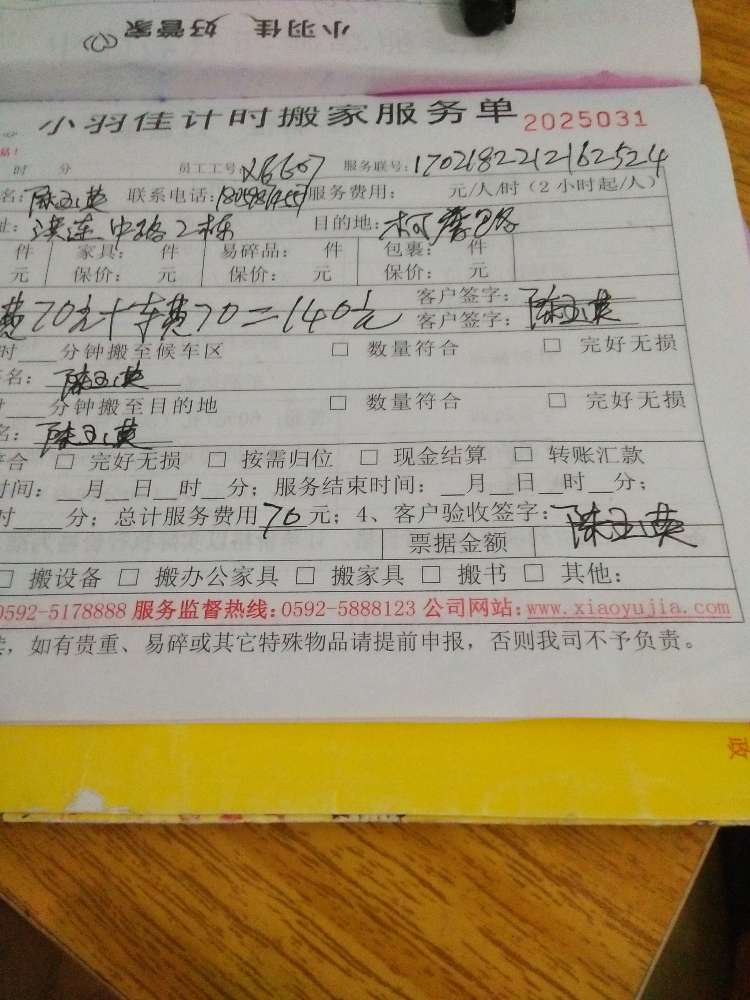 小羽佳 好管家
小羽佳计时搬家服务单 2025031
时 分 员工工号 服务联号:1702182212162524
名: 陈玉英 联系电话: 服务费用: 元/人/时(2小时起/人)
址: 洪莲中路2栋 目的地:
件 家具: 件 易碎品: 件 包裹: 件
元 保价: 元 保价: 元 保价: 元
费70元+车费70=140元 客户签字: 陈玉英
客户签字:
时___分钟搬至候车区 □ 数量符合 □ 完好无损
名: 陈玉英
时___分钟搬至目的地 □ 数量符合 □ 完好无损
名: 陈玉英
符合 □ 完好无损 □ 按需归位 □ 现金结算 □ 转账汇款
时间:__月__日__时__分; 服务结束时间:__月__日__时__分;
时___分; 总计服务费用70元; 4、客户验收签字: 陈玉英
票据金额
□ 搬设备 □ 搬办公家具 □ 搬家具 □ 搬书 □ 其他:
0592-5178888 服务监督热线:0592-5888123 公司网站:www.xiaoyujia.com
,如有贵重、易碎或其它特殊物品请提前申报,否则我司不予负责。